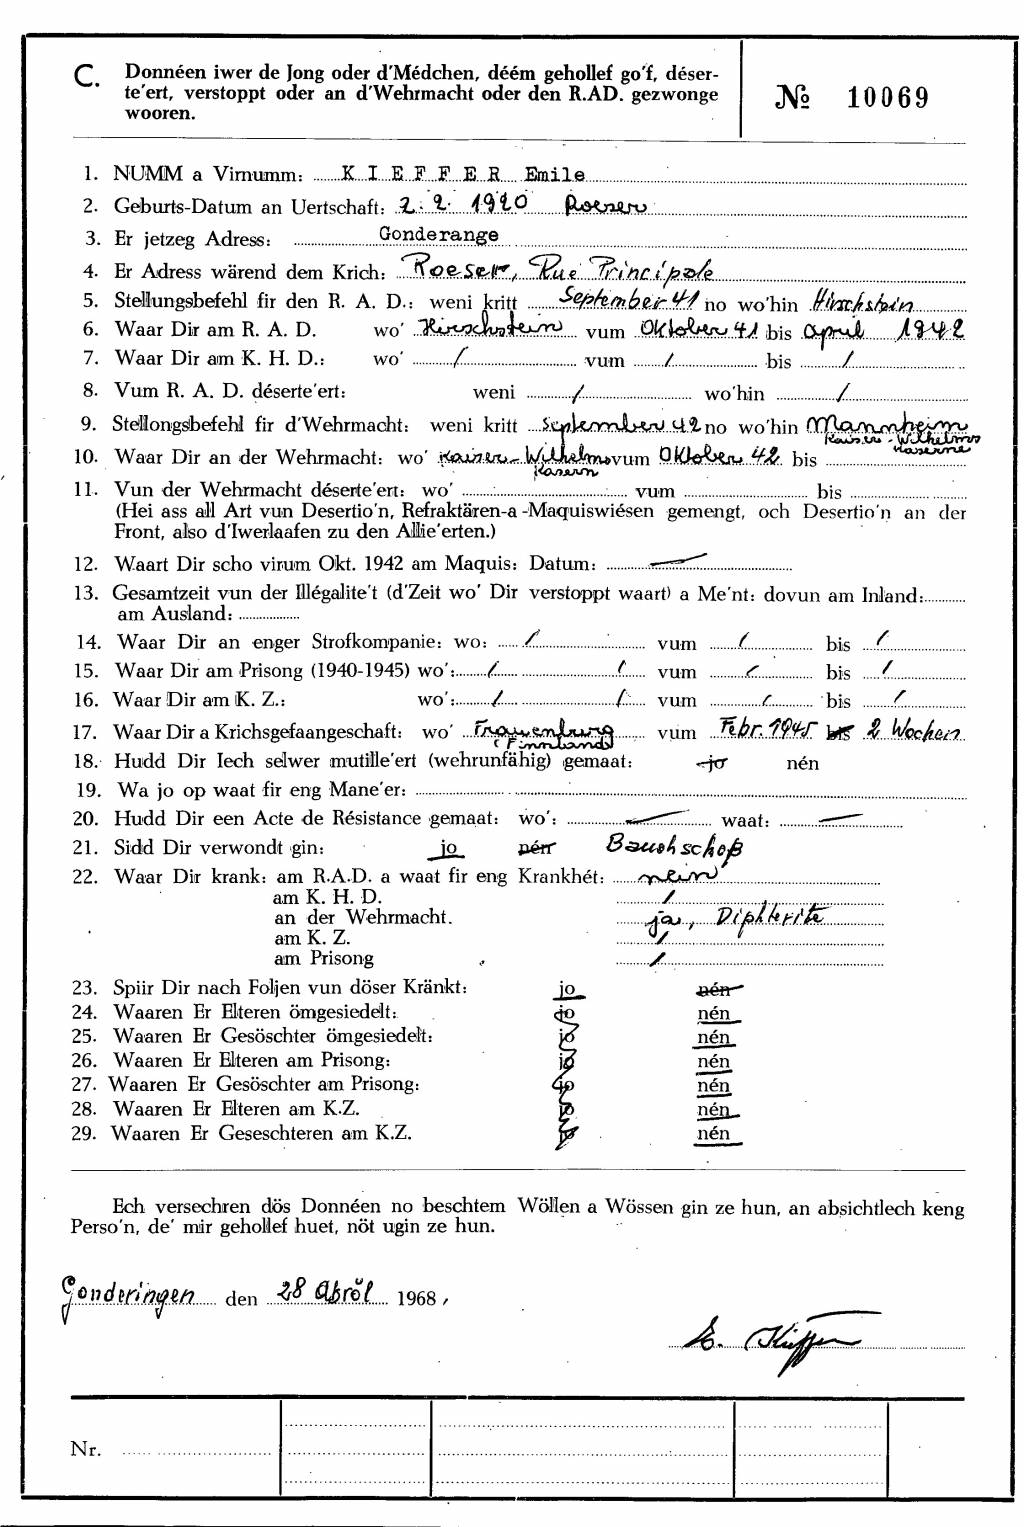 C. Donnéen iwer de Jong oder d'Médchen, déém gehollef go'f, déser-
te'ert, verstoppt oder an d'Wehrmacht oder den R.AD. gezwonge
wooren.
№ 10069
1. NUMM a Virnumm: KIEFFER Emile
2. Geburts-Datum an Uertschaft: 2. 2. 1920 Roeser
3. Er jetzeg Adress: Gonderange
4. Er Adress wärend dem Krich: Roeser, Rue Principale
5. Stellungsbefehl fir den R. A. D.: weni kritt September 41 no wo'hin Hirschstein
6. Waar Dir am R. A. D. wo' Hirschstein vum Oktober 41 bis April 1942
7. Waar Dir am K. H. D.: wo' / vum / bis /
8. Vum R. A. D. déserte'ert: weni / wo'hin /
9. Stellongsbefehl fir d'Wehrmacht: weni kritt September 42 no wo'hin Mannheim
Kaiser-Wilhelms
Kaserne
10. Waar Dir an der Wehrmacht: wo' Kaizer-Wilhelms vum Oktober 42 bis
Kasern
11. Vun der Wehrmacht déserte'ert: wo' vum bis
(Hei ass all Art vun Desertio'n, Refraktären-a -Maquiswiésen gemengt, och Desertio'n an der
Front, also d'Iwerlaafen zu den Allie'erten.)
12. Waart Dir scho virum Okt. 1942 am Maquis: Datum: —
13. Gesamtzeit vun der Illégalite't (d'Zeit wo' Dir verstoppt waart) a Me'nt: dovun am Inland:
am Ausland:
14. Waar Dir an enger Strofkompanie: wo: / vum / bis /
15. Waar Dir am Prisong (1940-1945) wo': / / vum / bis /
16. Waar Dir am K. Z.: wo': / / vum / bis /
17. Waar Dir a Krichsgefaangeschaft: wo' Frauenburg vum Febr. 1945 bis 2 Wochen
(Finnland)
18. Hudd Dir Iech selwer mutille'ert (wehrunfähig) gemaat: jo nén
19. Wa jo op waat fir eng Mane'er:
20. Hudd Dir een Acte de Résistance gemaat: wo': — waat: —
21. Sidd Dir verwondt gin: jo nén Bauchschoß
22. Waar Dir krank: am R.A.D. a waat fir eng Krankhét: nein
am K. H. D. /
an der Wehrmacht. ja, Diphterite
am K. Z. /
am Prisong /
23. Spiir Dir nach Foljen vun döser Kränkt: jo nén
24. Waaren Er Elteren ömgesiedelt: jo nén
25. Waaren Er Gesöschter ömgesiedelt: jo nén
26. Waaren Er Elteren am Prisong: jo nén
27. Waaren Er Gesöschter am Prisong: jo nén
28. Waaren Er Elteren am K.Z. jo nén
29. Waaren Er Geseschteren am K.Z. jo nén
Ech versechren dös Donnéen no beschtem Wöllen a Wössen gin ze hun, an absichtlech keng
Perso'n, de' mir gehollef huet, nöt ugin ze hun.
Gonderingen den 28 Abröl 1968,
E. Kieffer
Nr.